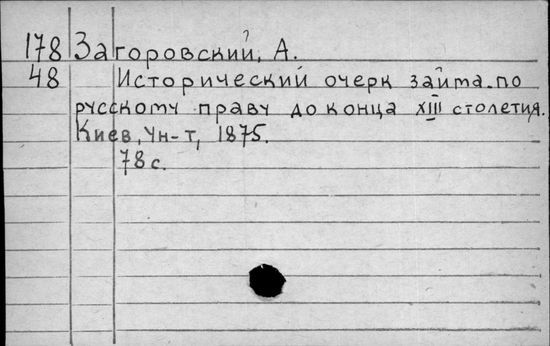 178 Загоровский, А.
48 Исторический очерк займа по
русскому праву до конца XIII столетия.
Киев, Ун-т, 1875.
78 с.